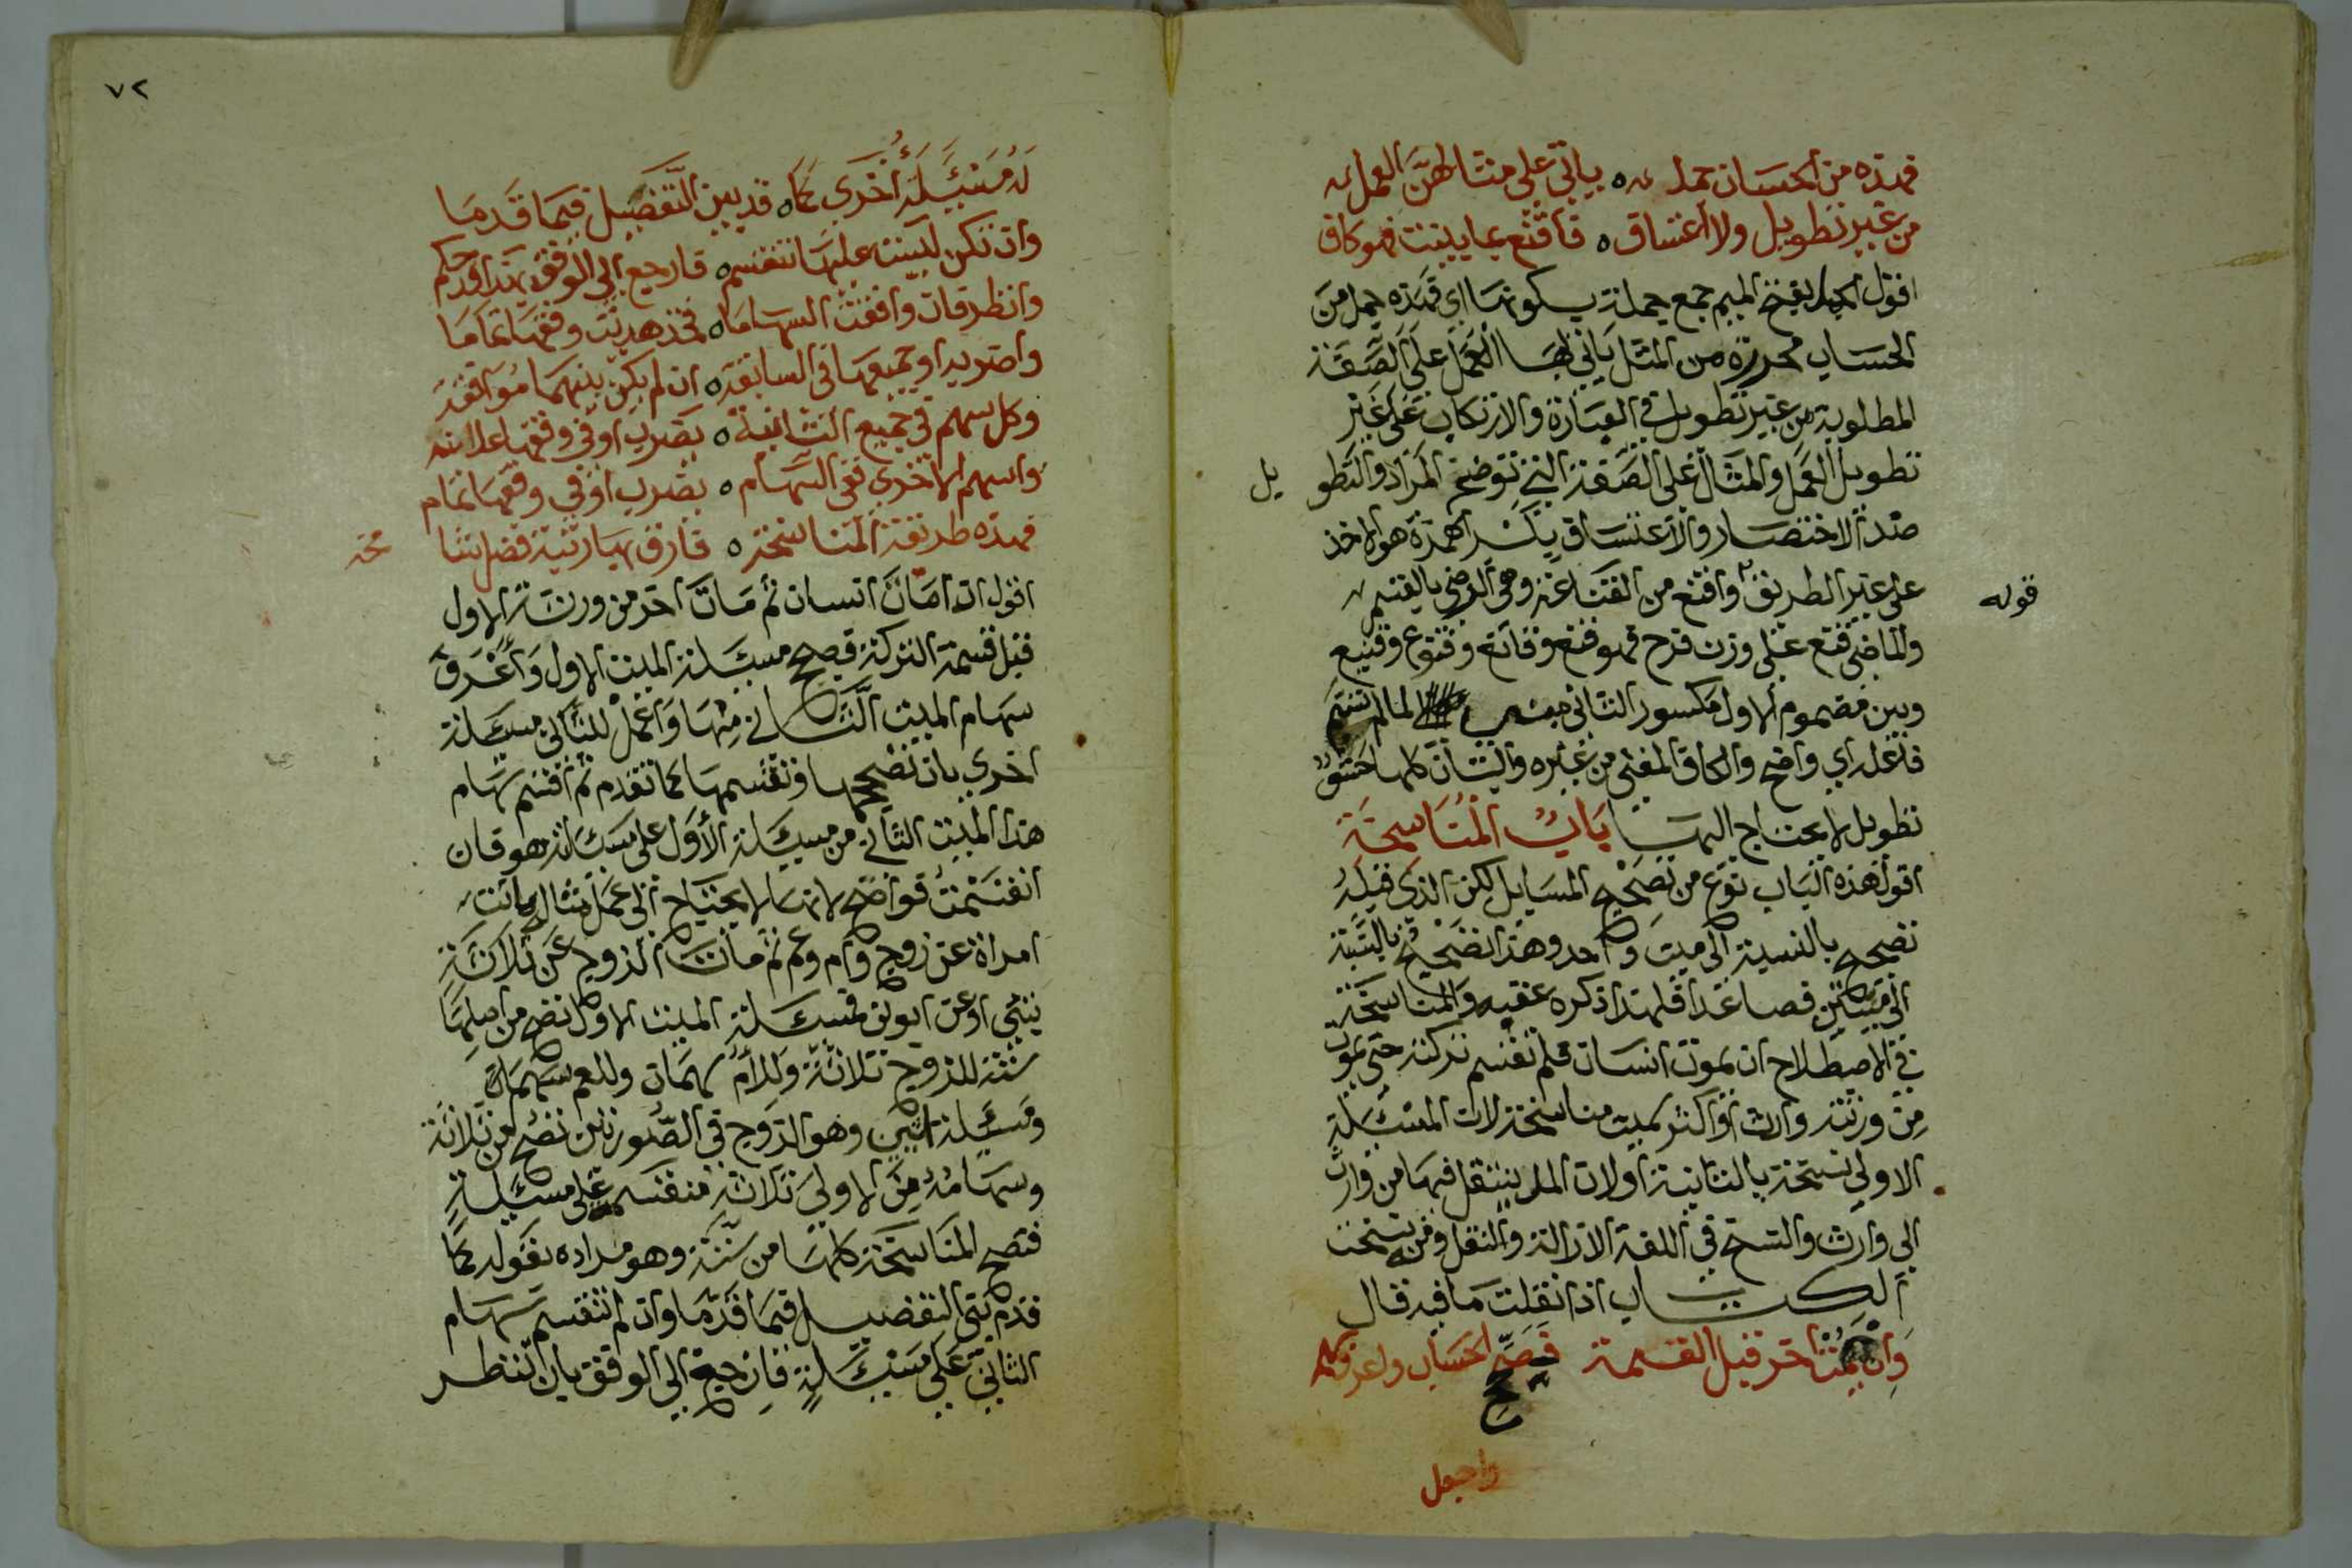 فهذه من الحساب جمل يأتي على مثالهن العمل
من غير تطويل ولا اعتساف فاقنع بما يبنت فهو كاف
اقول الجمل بفتح الميم جمع جملة بسكونها اي فهذه جمل من
الحساب محررة من المثل ياتي بها العمل على الصفة
المطلوبة من غير تطويل في العبارة والارتكاب على غير
تطويل العمل والمثال على الصفة التي توضح المراد والتطو يل
ضد الاختصار والاعتساف بكسر الهمزة هو الاخذ
على غير الطريق واقنع من القناعة وهي الرضى بالقسم قوله
والماضي قنع على وزن فرح فهو قنع وقانع وقنوع وقنيع
وبين مضموم الاول مكسور الثاني لما لم
فاعله اي واضح والكاف المغني من غيره والبيتان كلها حشو
تطويل لا يحتاج اليها باب المناسخة
اقول هذه الباب نوع من تصحيح المسايل لكن الذي قبله
تصحيح بالنسبة الى ميت واحد وهذا تصحيح بالنسبة
الى ميتين فصاعدا فلهذا ذكره عقبه والمناسخة
في الاصطلاح ان يموت انسان فلم تقسم تركته حتى يموت
من ورثته وارث او اكثر سميت مناسخة لان المسئلة
الاولى نسخت بالثانية او لان المال ينتقل فيها من وارث
الى وارث والنسخ في اللغة الازالة والنقل ومن نسخت
الكتاب اذا نقلت ما فيه قال
وان يمت آخر قبل القسمة فصحح الحساب واعرف سهمه
واجعل
٧٢
له مسئلة اخرى كما قد بين التفضيل فيما قدما
وان تكن ليست عليها تنقسم فارجع الى الوفق بهذا قد حكم
وانظر فان وافقت السهاما فخذ هديت وفقها تماما
واضربه او جميعها في السابقه ان لم يكن بينهما موافقه
وكل سهم في جميع الثانية يضرب او في وفقها علانيه
واسهم الاخرى ففي السهام يضرب او في وفقها تمام
فهذه طريقة المناسخة فارق بها رتبة فضل شا مخه
اقول اذا مات انسان ثم مات اخر من ورثة الاول
قبل قسمة التركة فصحح مسئلة الميت الاول واعرف
سهام الميت الثاني منها واعمل للثاني مسئلة
اخرى بان تصححها وتقسمها كما تقدم ثم اقسم سهام
هذا الميت الثاني من مسئلة الاول على مسئلته هو فان
انقسمت فواضح لانها لا يحتاج الى عمل مثاله ماتت
امراة عن زوج وام وعم ثم مات الزوج عن ثلاثة
بني او عن ابوين فمسئلة الميت الاول تصح من اصلها
ستة للزوج ثلاثة وللام سهمان وللعم سهم
ومسئلة الثاني وهو الزوج في الصورتين تصح من ثلاثة
وسهامه من الاولى ثلاثة منقسمة على مسئلة
فتصح المناسخة كلها من ستة وهو مراده بقوله كما
قدم بتي التفضيل فيما قدما وان لم تنقسم سهام
الثاني على مسئلة فارجع الى الوفق بان تنظر